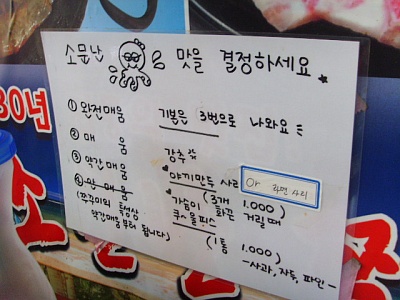 소문난 맛을 결정하세요
① 완전매움 기본은 3번으로 나와요
② 매 움
③ 약간 매움 강추
④ 안 매움 야끼만두 사리 Or 라면 사리
(쭈꾸미의 특성상 (3개 1.000)
약간매움부터 됩니다) 가슴이 화끈 거릴때
쿨피스
(1통 1.000)
-사과, 자두, 파인-
30년
소